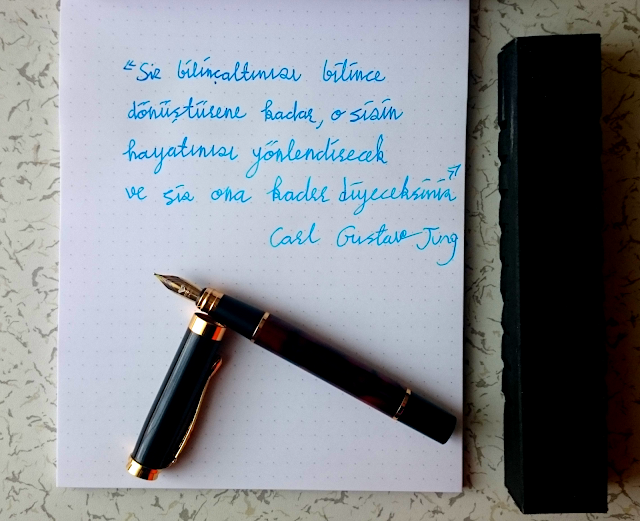 "Siz bilinçaltınızı bilince
dönüştürene kadar, o sizin
hayatınızı yönlendirecek
ve siz ona kader diyeceksiniz"
Carl Gustav Jung